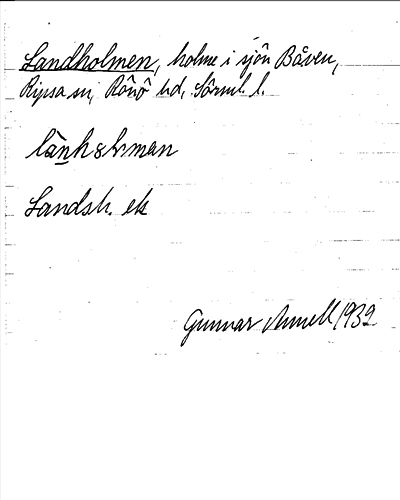 Landholmen, holme i sjön Båven,
Ripsa sn, Rönö hd, Sörml. l.
Landsk. ek
Gunnar Annell 1932